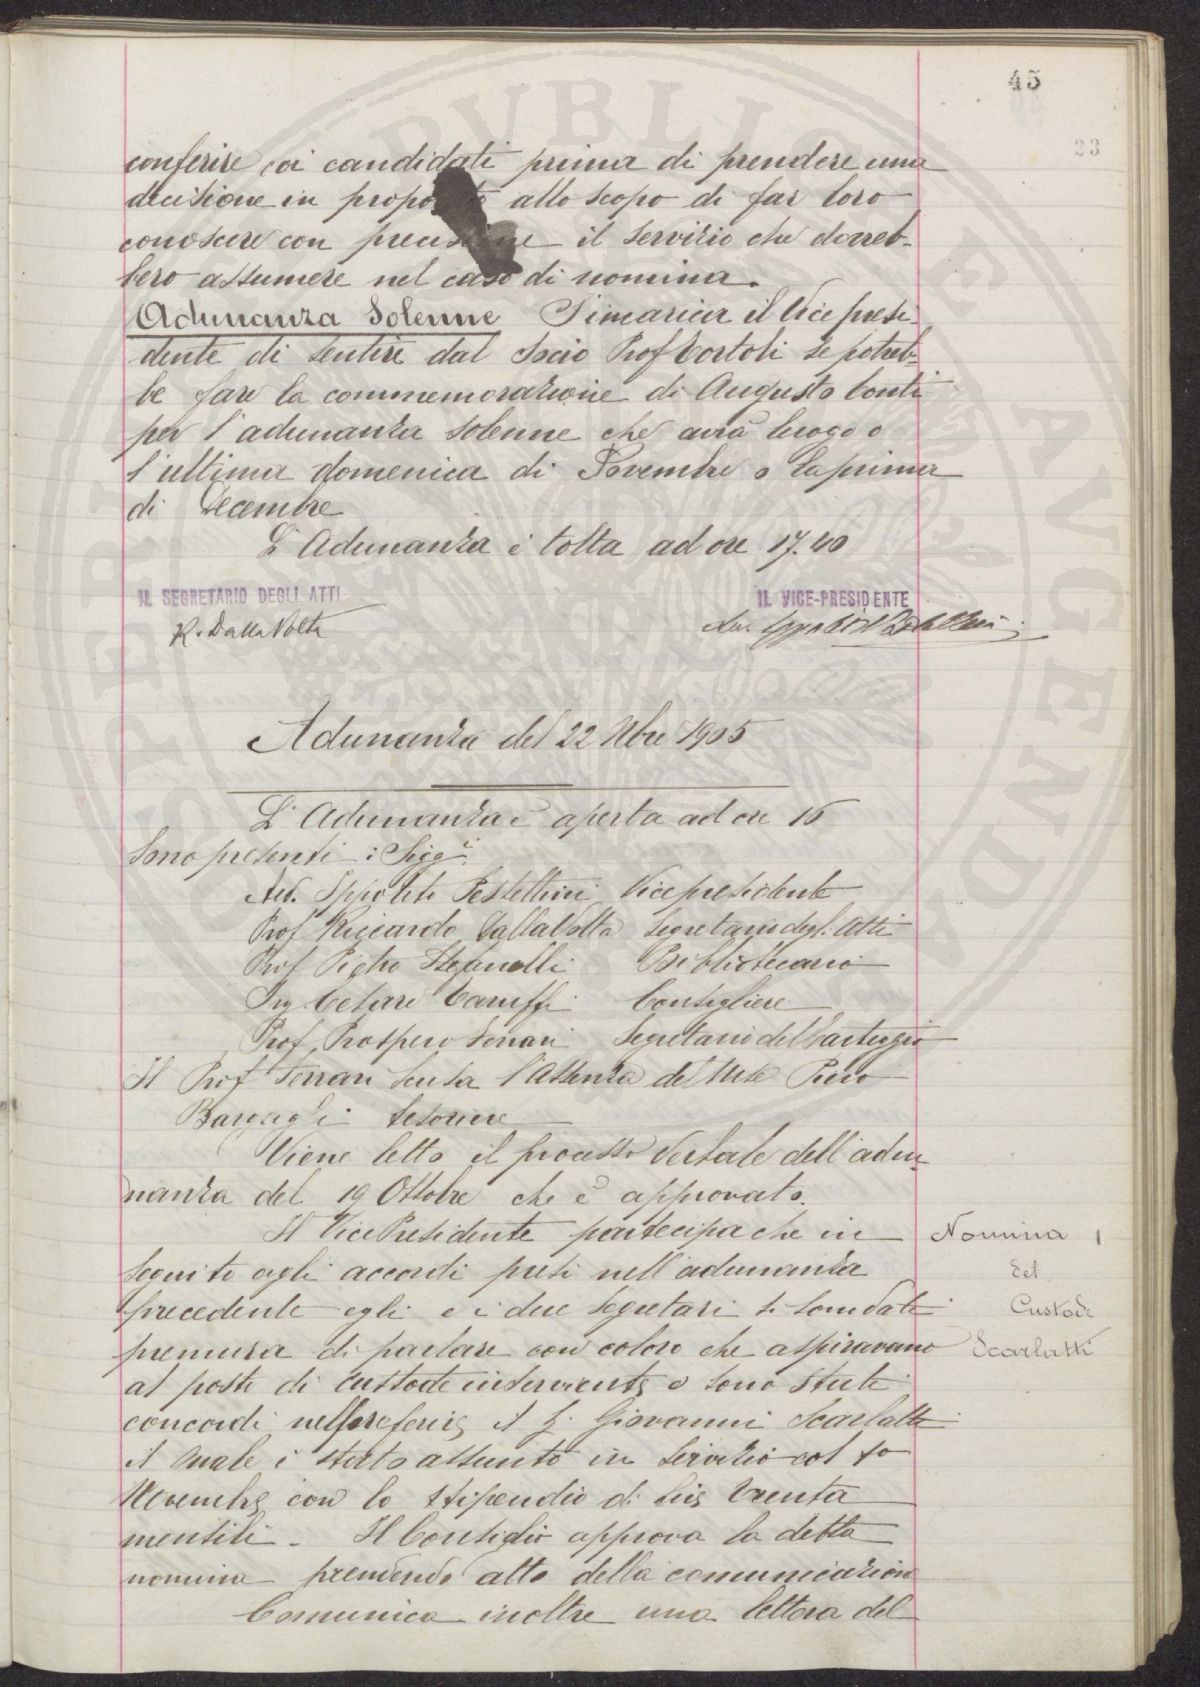 45
23
conferire coi candidati prima di prendere una
decisione in proposito allo scopo di far loro
conoscere con precisione il servizio che dovreb-
bero assumere nel caso di nomina.
Adunanza Solenne Rimarica il Vice presi-
dente di sentire dal Socio Prof Bortoli se potreb-
be fare la commemorazione di Augusto Conti
per l'adunanza solenne che avrà luogo o
l'ultima domenica di Novembre o la prima
di Decembre
L'Adunanza è tolta ad ore 17.40
IL SEGRETARIO DEGLI ATTI IL VICE-PRESIDENTE
R. Dalla Volta Avv. Ippolito Pestellini
Adunanza del 22 Nbre 1905
L'Adunanza è aperta ad ore 16
Sono presenti: Sigg.i
Avv. Ippolito Pestellini Vicepresidente
Prof Riccardo DallaVolta Segretario degl. Atti
Prof Pietro Stefanelli Bibliotecario
Ing Cesare Taruffi Consigliere
Prof. Prospero Ferrari Segretario del Carteggio
Il Prof Ferrari scusa l'assenza del M.se Piero
Bargagli tesoriere
Viene letto il processo verbale dell'adu-
nanza del 19 Ottobre che è approvato.
Il VicePresidente partecipa che in
seguito agli accordi presi nell'adunanza
precedente egli e i due segretari si son dati
premura di parlare con coloro che aspiravano
al posto di custode inserviente e sono stati
concordi nell preferire il S. Giovanni Scarlatti
il quale è stato assunto in servizio col 10
Novembre con lo stipendio di Lire trenta
mensili. Il Consiglio approva la detta
nomina prendendo atto della comunicazione
Comunica inoltre una lettera del
Nomina 1
del
Custode
Scarlatti